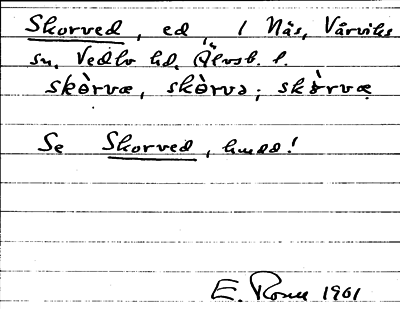 Skorved, ed, 1 Näs, Vårviks
sn, Vedbo hd, Älvsb. l.
skòrvæ, skòrvə; skòrvæ
Se Skorved, hmdd!
E. Rosell 1961